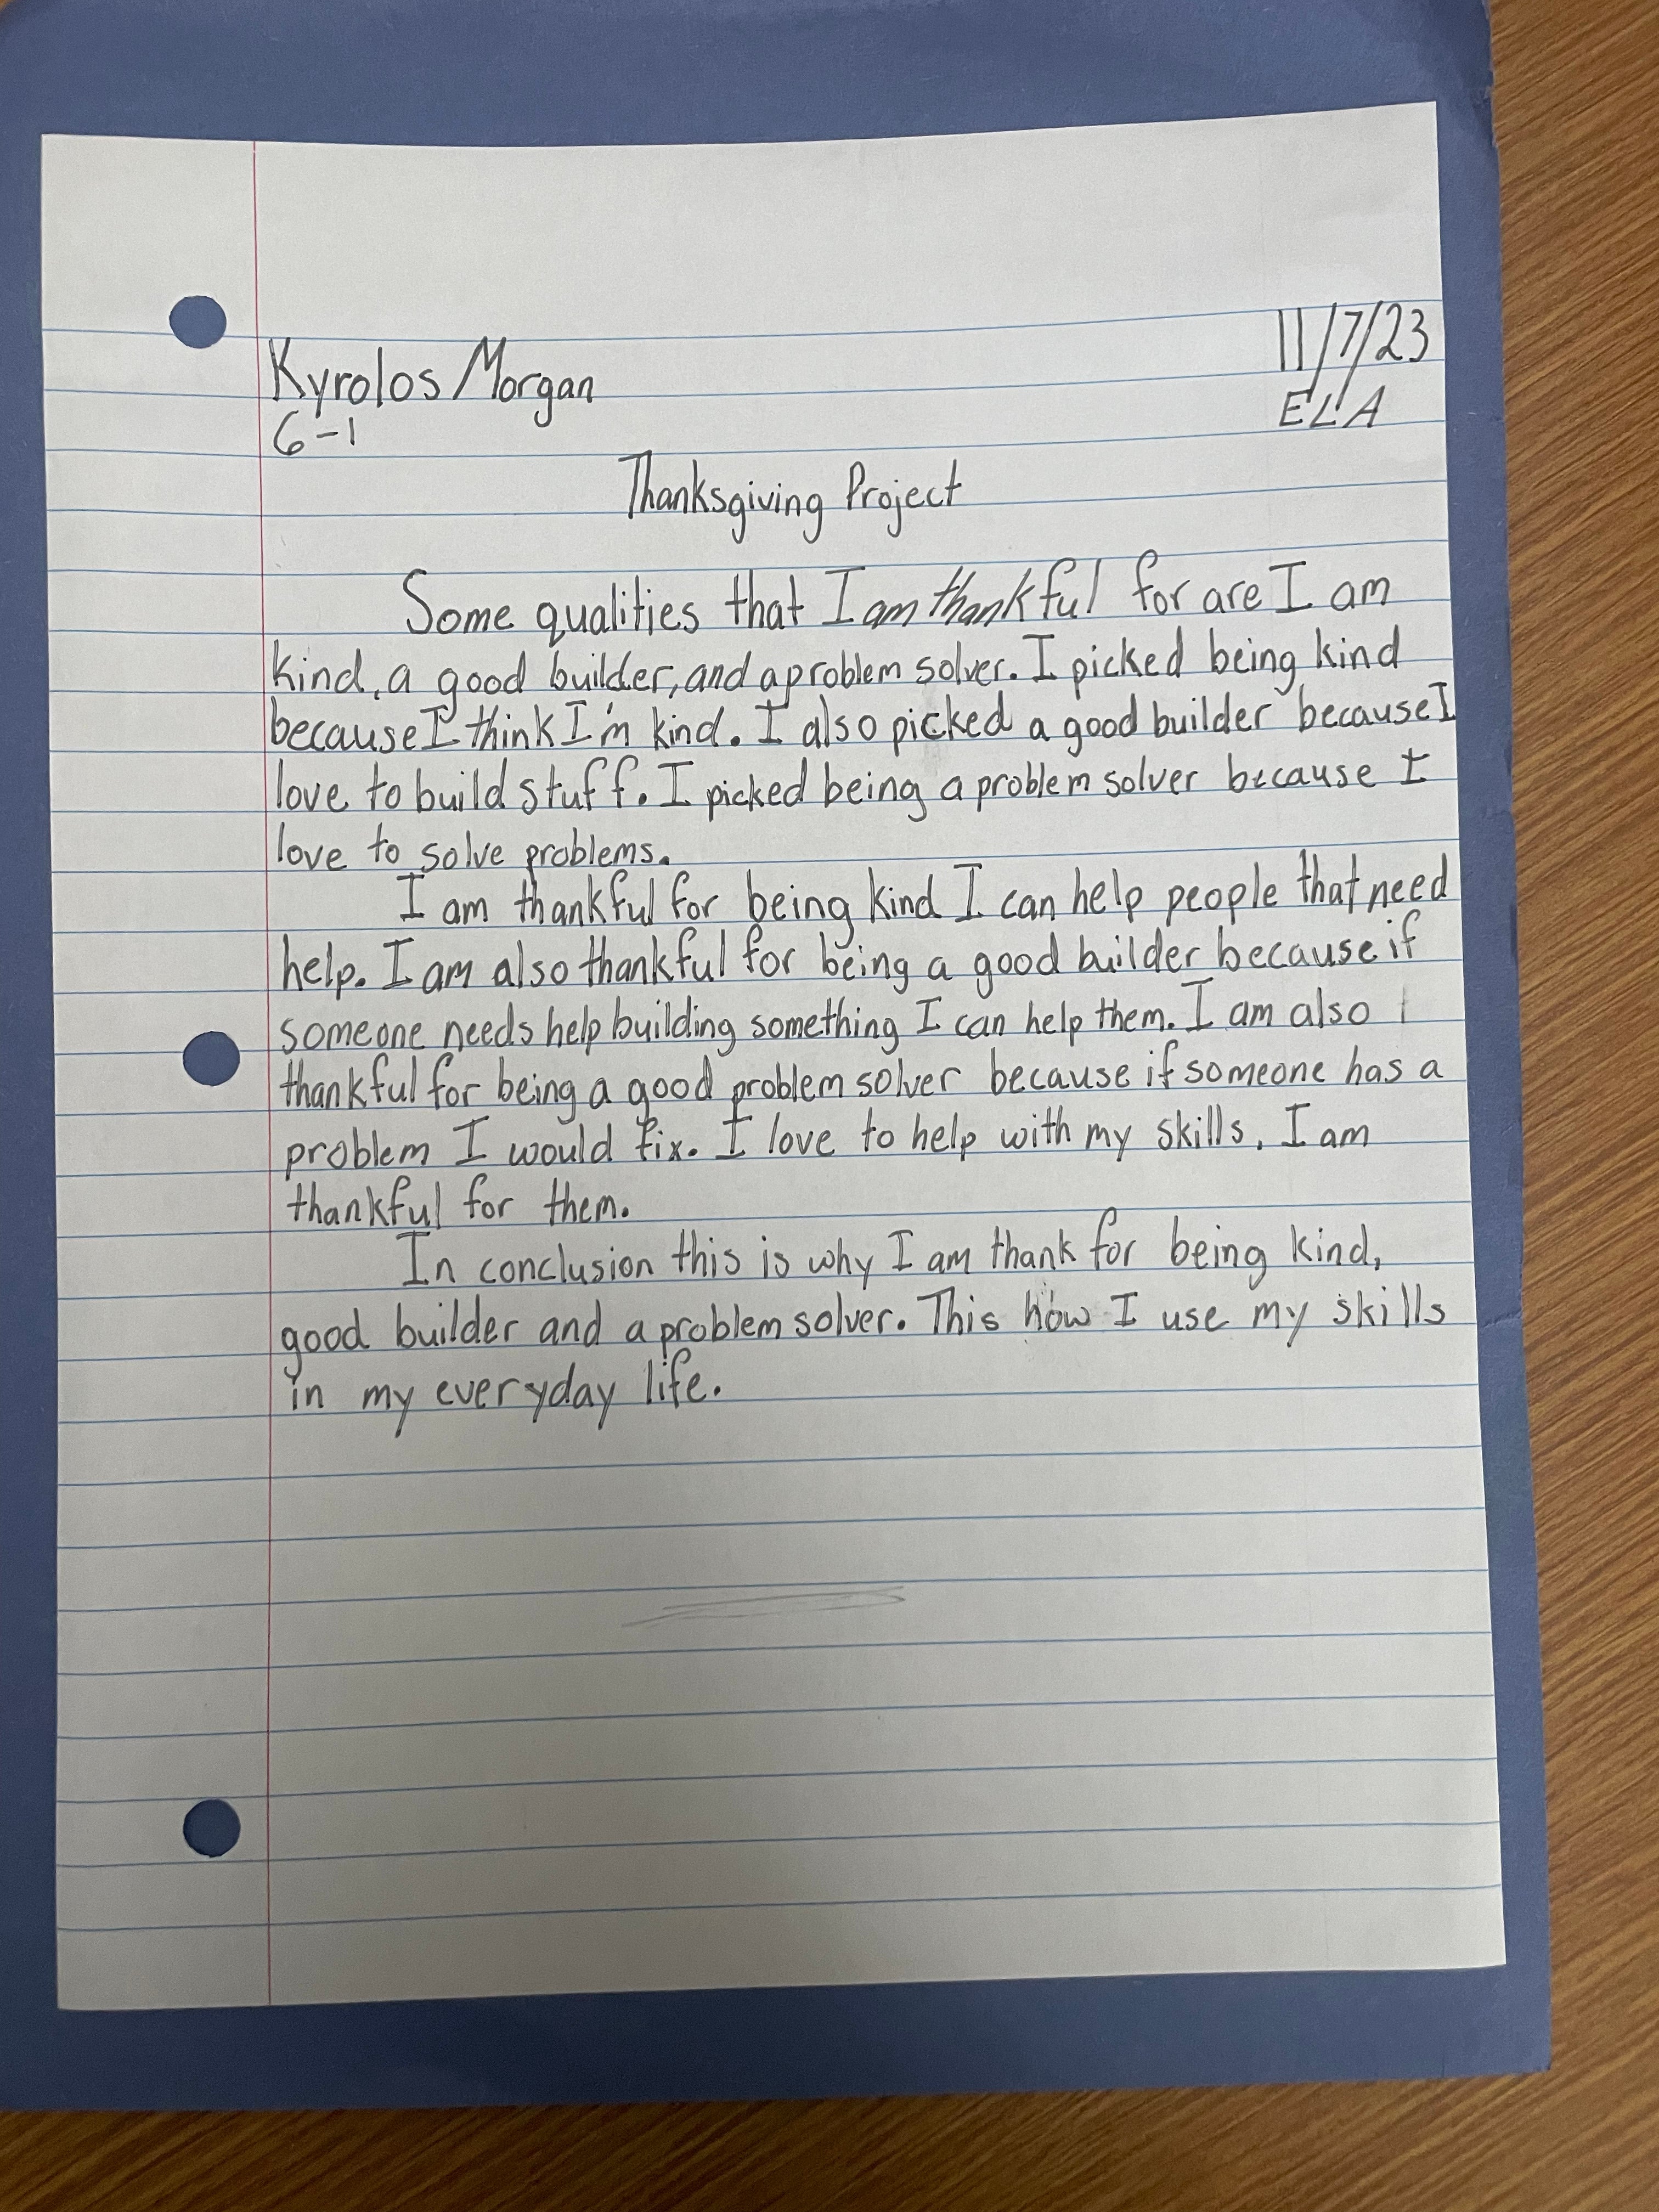 Kyrolos Morgan
11/7/23
6-1
ELA
Thanksgiving Project
Some qualities that I am thankful for are I am
kind, a good builder, and a problem solver. I picked being kind
because I think I'm kind. I also picked a good builder because I
love to build stuff. I picked being a problem solver because I
love to solve problems.
I am thankful for being kind I can help people that need
help. I am also thankful for being a good builder because if
someone needs help building something I can help them. I am also
thankful for being a good problem solver because if someone has a
problem I would fix. I love to help with my skills, I am
thankful for them.
In conclusion this is why I am thank for being kind,
good builder and a problem solver. This how I use my skills
in my everyday life.